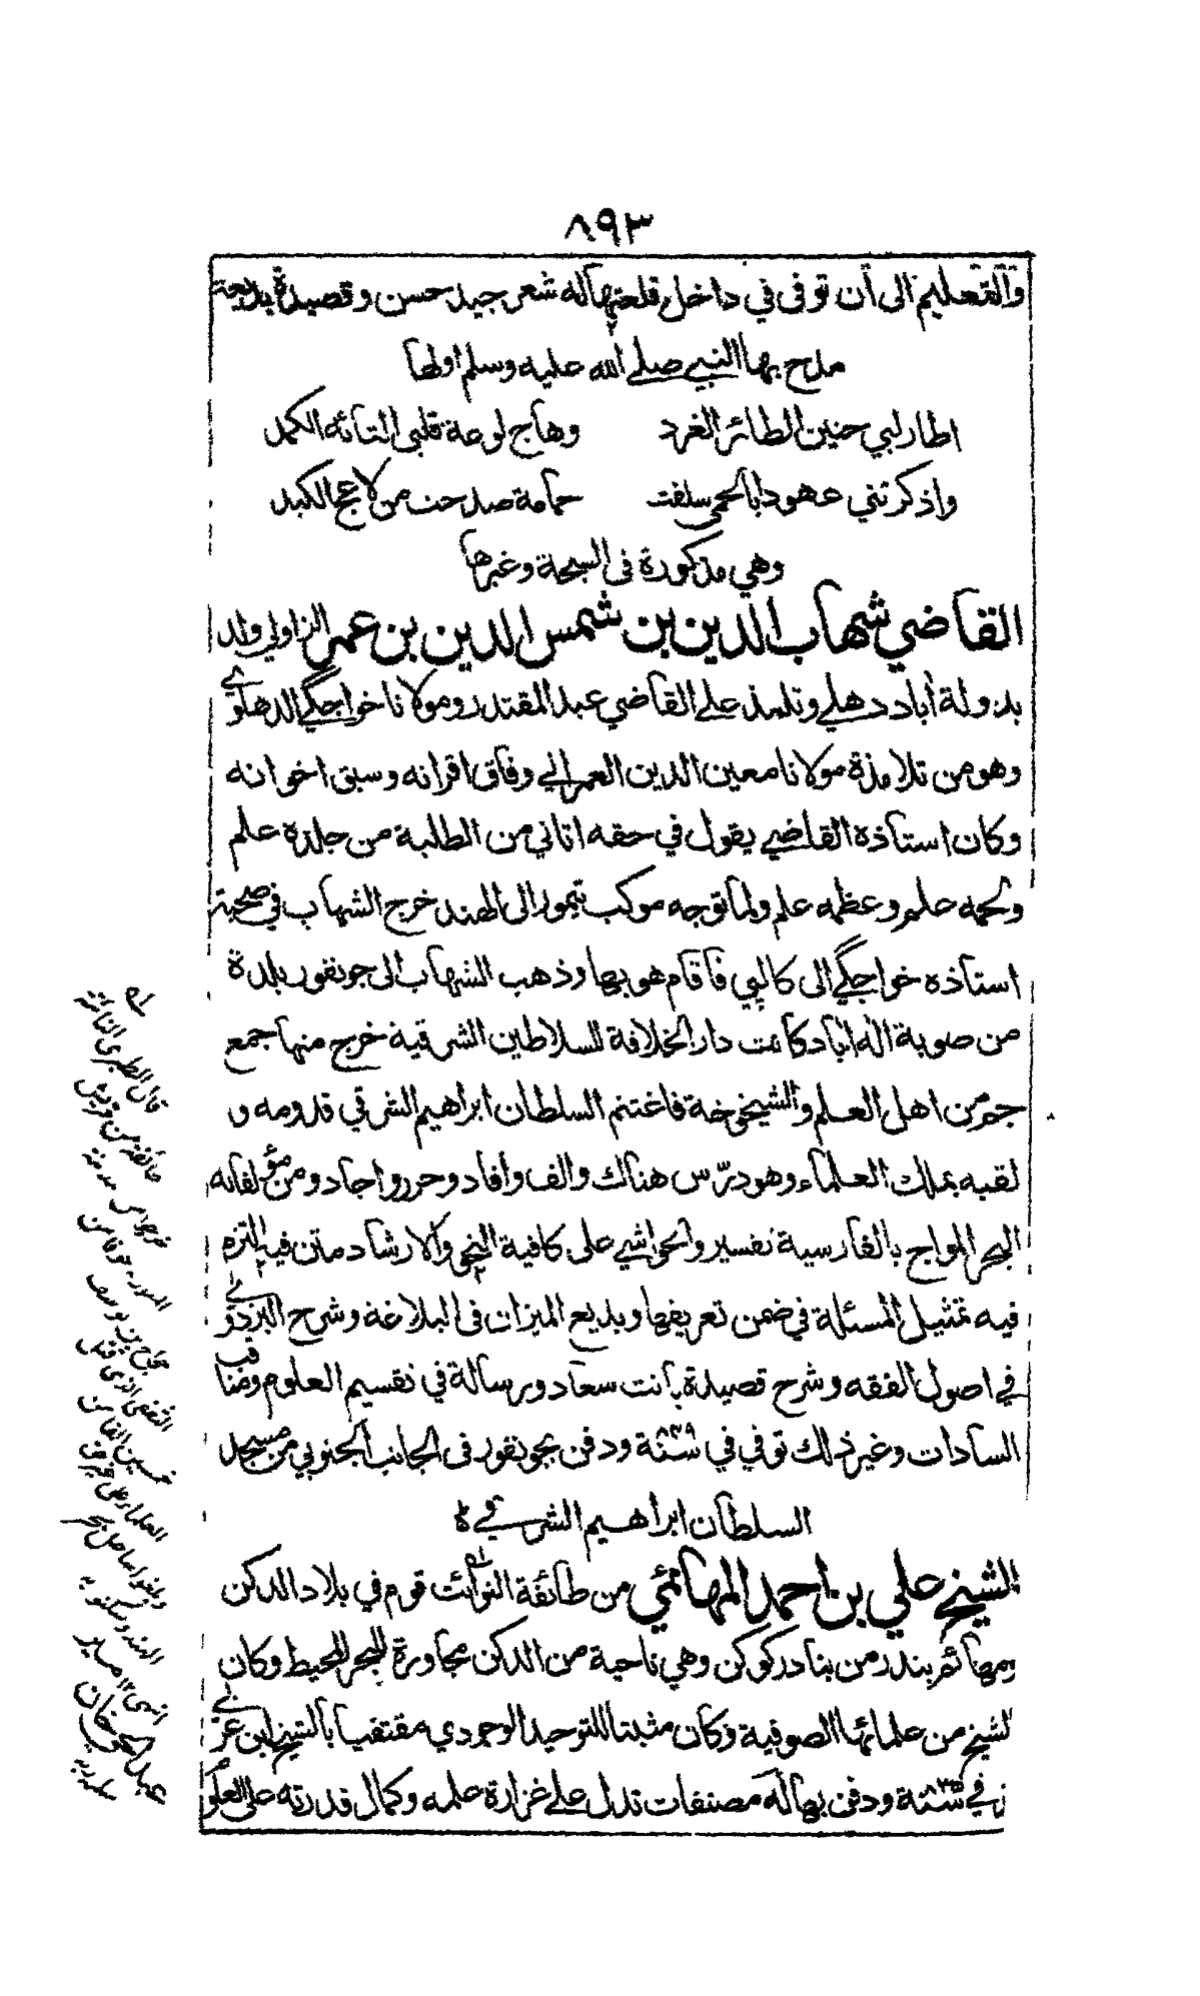 ٨٩٣
والتعليم الى أن توفى في داخل قلعتها له شعر جيد حسن وقصيدة بديعة
مدح بها النبي صلى الله عليه وسلم اولها
اطار لبي حنين الطائر الغرد وهاج لوعة قلبى التائه الكمد
واذكرتني عهودا بالحمى سلفت حمامة صدحت من لاعج الكبد
وهي مذكورة فى السبحة وغيرها
القاضي شهاب الدين بن شمس الدين بن عمر الزاولي ولد
بدولة أباد دهلي وتلمذ على القاضي عبد المقتدر ومولانا خواجگي الدهلوي
وهو من تلامذة مولانا معين الدين العمراني وفاق اقرانه وسبق اخوانه
وكان استاذه القاضي يقول في حقه اتاني من الطلبة من جلده علم
ولحمه علم وعظمه علم ولما توجه موكب تيمور الى الهند خرج الشهاب في صحبة
استاذه خواجگي الى كالپي فاقام هو بها وذهب الشهاب الى جونفور بلدة
من صوبة اله اباد كانت دار الخلافة للسلاطين الشرقية خرج منها جمع
جم من اهل العلم والشيخوخة فاغتنم السلطان ابراهيم الشرقي قدومه و
لقبه بملك العلماء وهو درّس هناك والف وافاد وحرر واجاد ومن مؤلفاته
البحر المواج بالفارسية تفسير والحواشي على كافية النحو والارشاد متن فيه التزم
فيه تمثيل المسئلة في ضمن تعريفها وبديع الميزان فى البلاغة وشرح البزدوي
في اصول الفقه وشرح قصيدة بانت سعاد ورسالة في تقسيم العلوم ومناقب
السادات وغير ذلك توفي في سنة ٨٤٩ ودفن بجونفور فى الجانب الجنوبي من مسجد
السلطان ابراهيم الشرقي
الشيخ علي بن احمد المهائمي من طائفة النوائت قوم في بلاد الدكن
ومهائم بندر من بنادر كوكن وهي ناحية من الدكن مجاورة للبحر المحيط وكان
الشيخ من علمائها الصوفية وكان مثبتا للتوحيد الوجودي مقتفيا بالشيخ ابن عربي
في سنة ٨٣٥ ودفن بها له مصنفات تدل على غزارة علمه وكمال قدرته على العلوم
قال الطبرى النائتة
طائفة من قريش
خرجوا من مدينة
خوفا من
حجاج بن يوسف
الثقفى الذى قتل
خمسين الف من
العلماء
وبلغوا ساحل بحر
الهند وسكنوا به
انتهى